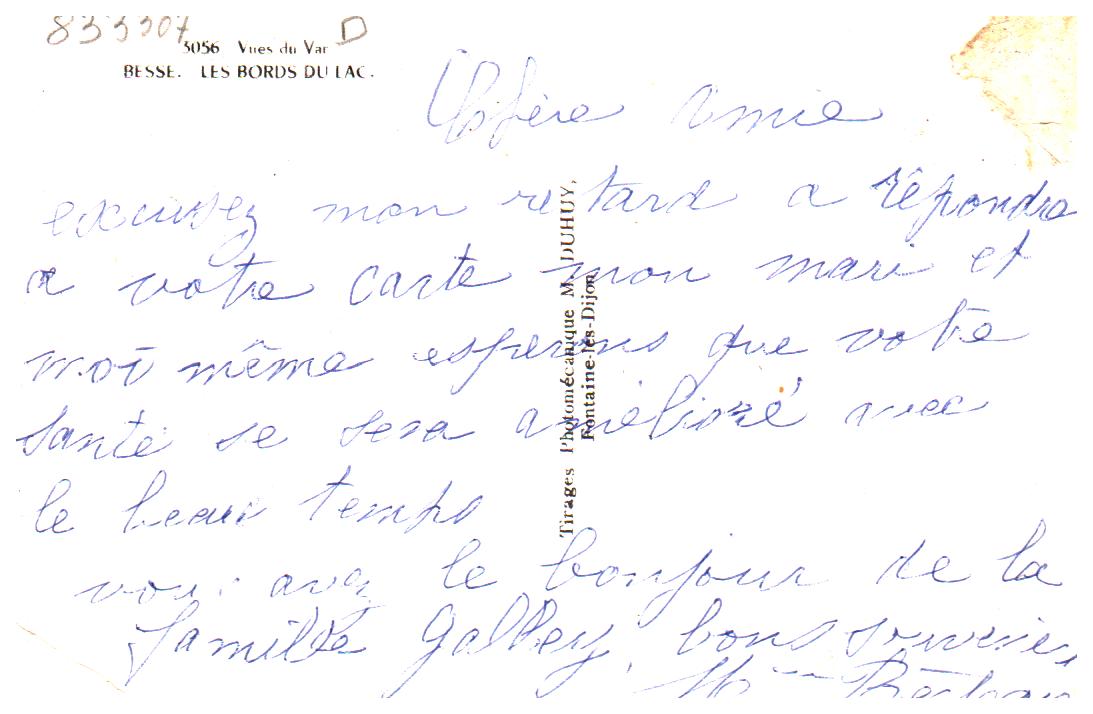 833307 D
3056 Vues du Var
BESSE. LES BORDS DU LAC.
Chère Amie
excusez mon retard a répondre
a votre carte mon mari et
moi même esperons que votre
santé se sera amélioré avec
le beau temps
vous avez le bonjour de la
famille Galley, bons souvenirs
Mme
Tirages Photomécanique M. DUHUY,
Fontaine-lès-Dijon